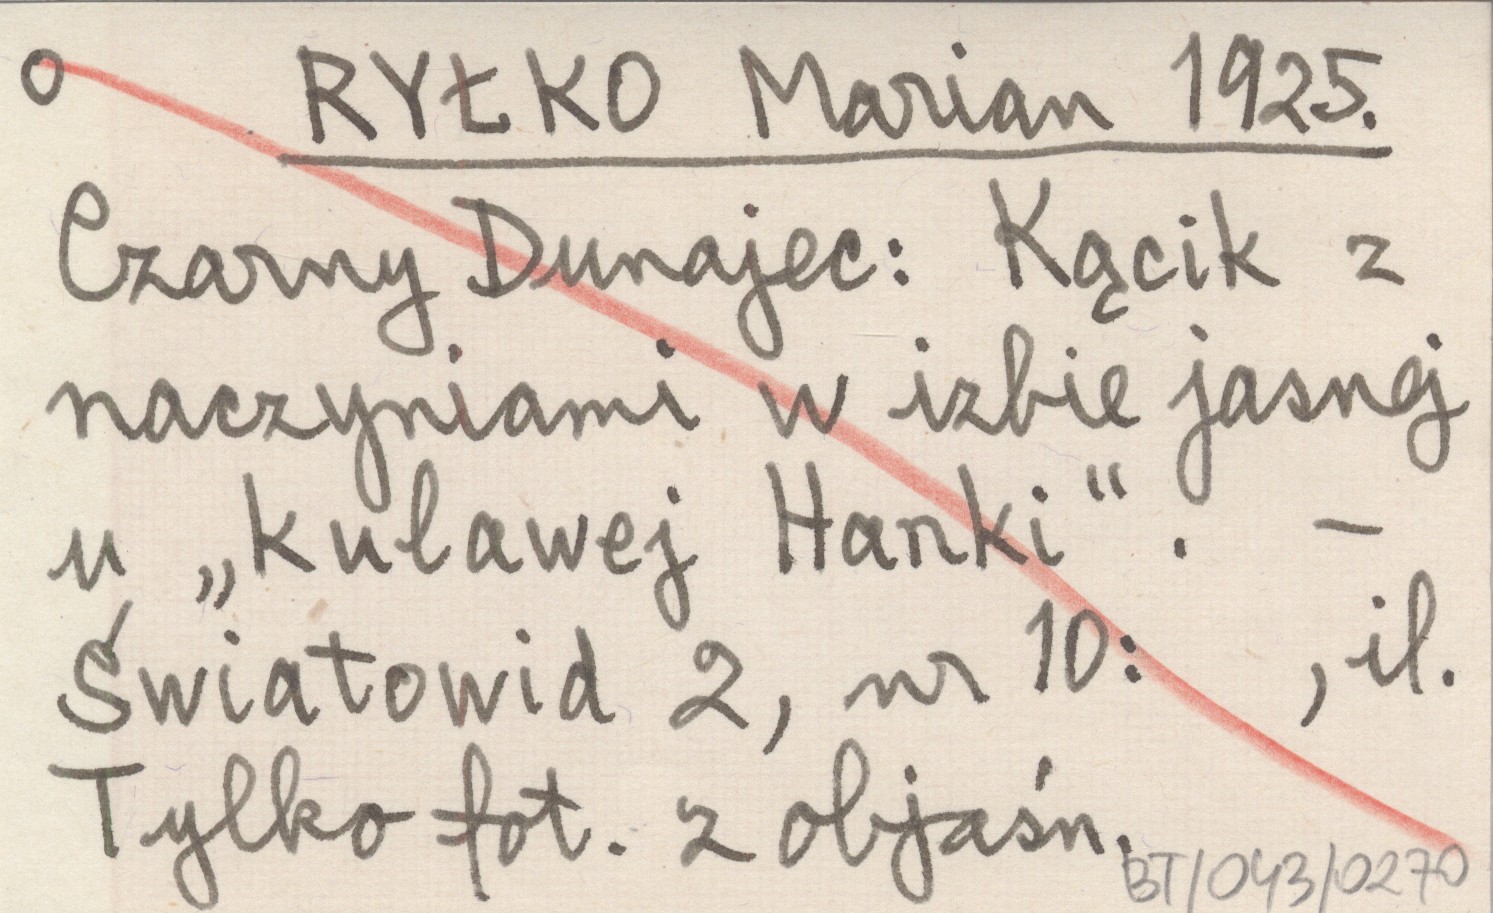 o RYŁKO Marian 1925.
Czarny Dunajec: Kącik z
naczyniami w izbie jasnej
u „kulawej Hanki". —
Światowid 2, nr 10: , il.
Tylko fot. z objaśn.
BT/043/0270